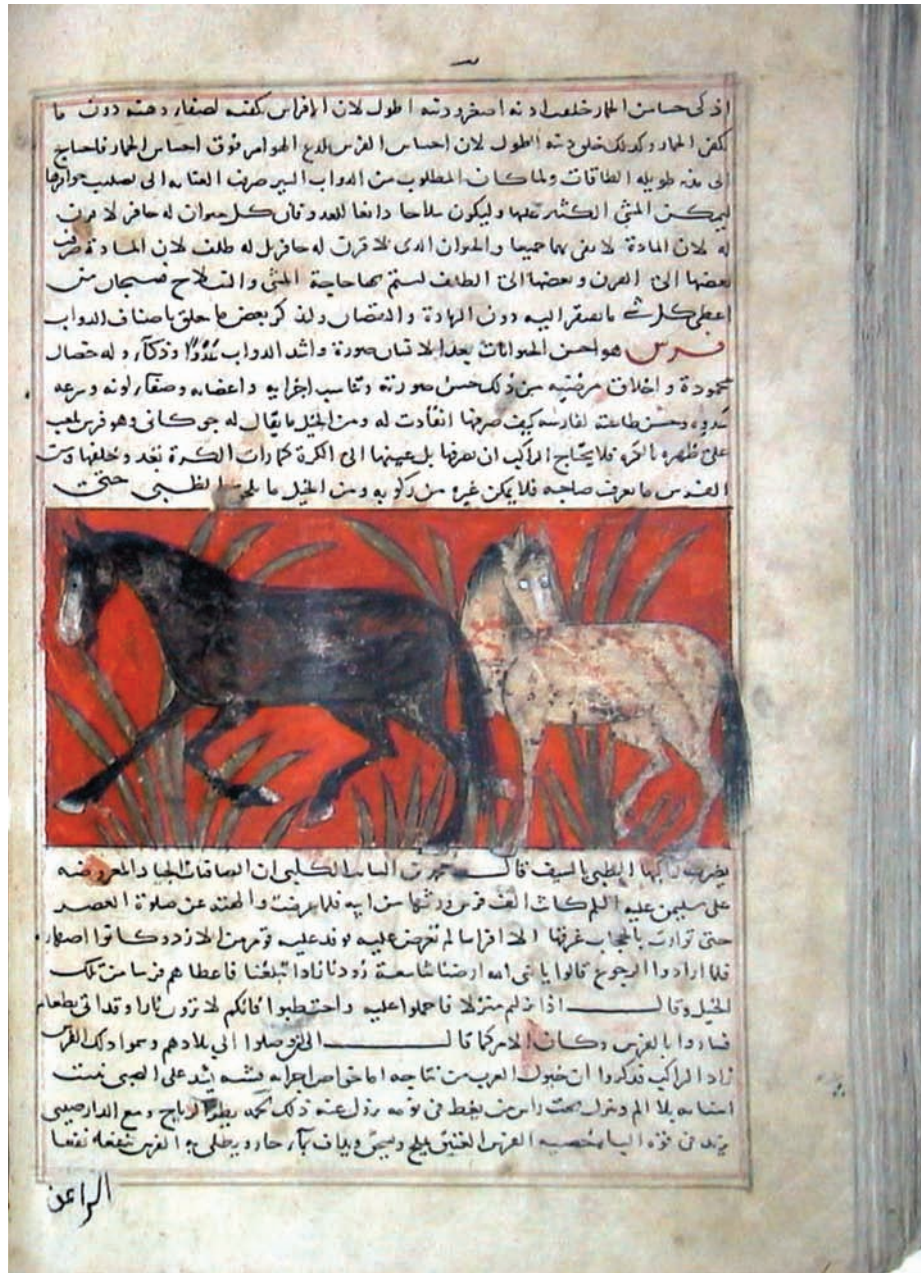 اذكى حساس الحمار خلقت اذنه اصغر وذنبه اطول لان الافراس كفته لصغار دهته دون ما
كفى الحمار وكذلك خلق ذنبه اطول لان احساس الفرس بلدغ الهوام فوق احساس الحمار فاحتاج
الى مذبه طويله الطاقات ولما كان المطلوب من الدواب السير صرف العنايه الى تصليب حوافرها
ليمكن المشي الكثير عليها وليكون سلاحا دافعا للعدو فان كل حيوان له حافر لا قرن
له لان المادة لا تفى بهما جميعا والحيوان الذى لا قرن له حافر بل له ظلف لان المادة صرف
بعضها الى القرن وبعضها الى الظلف ليتم بهما حاجة المشى والسلاح فسبحان من
اعطى كل شے ما يفتقر اليه دون الزيادة والنقصان ولنذكر بعض ما خلق باصناف الدواب
فرس هو احسن الحيوانات بعد الانسان صورة واشد الدواب عدوا وذكآء وله خصال
محمودة واخلاق مرضيه من ذلك حسن صورته وتناسب اجزايه واعضايه وصفاء لونه وسرعه
عدوه وحسن طاعته لفارسه كيف صرفها انقادت له ومن الخيل ما يقال له جوكانى وهو فرس يلعب
على ظهره بالكره فلا يحتاج الراكب ان يصرفها بل عينها الى الكرة كما رات الكرة تعد وخلفها ومن
الفرس ما يعرف صاحبه فلا يمكن غيره من ركوبه ومن الخيل ما يلحق الظبى حتى
يضرب راكبها الظبى بالسيف قال محمد بن السايب الكلبى ان الصافنات الجياد المعروضه
على سليمن عليه السلم كانت الف فرس ورثها من ابيه فلما عرضت والهته عن صلوة العصر
حتى توارت بالحجاب عرقبها الا افراسا لم تعرض عليه فوفد عليه قوم من الازد وكانوا اصهاره
فلما ارادوا الرجوع قالوا يا نبى الله ارضنا شاسعة زودنا زادا تبلغنا فاعطاهم فرسا من تلك
الخيل وقال اذا نزلتم منزلا فاحملوا عليه واحتطبوا فانكم لا تورون نارا وقد اتى بطعام
فساروا بالفرس وكان الامر كما قال الى ان وصلوا الى بلادهم وسموا ذلك الفرس
زاد الراكب فذكروا ان خيول العرب من نتاجه اما خواص اجزايه سنه تشد على الصبى نبتت
اسنانه بلا الم وتترك تحت راس من يغط فى نومه يزول عنه ذلك لحمه يطرد الرياح ومع الدارصينى
يزيد فى قوة الباه خصيه الفرس العتيق يملح ويبس ويداف بمآء حار ويطلى به الفرس تنفعه نفعا